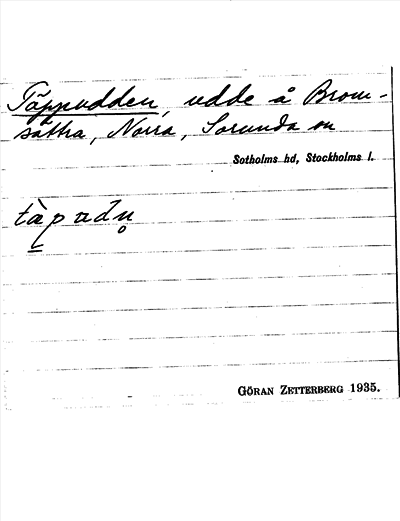 Täppudden, udde å Brom-
sättra, Norra, Sorunda sn
Sotholms hd, Stockholms l.
tàpudn̥
GÖRAN ZETTERBERG 1935.